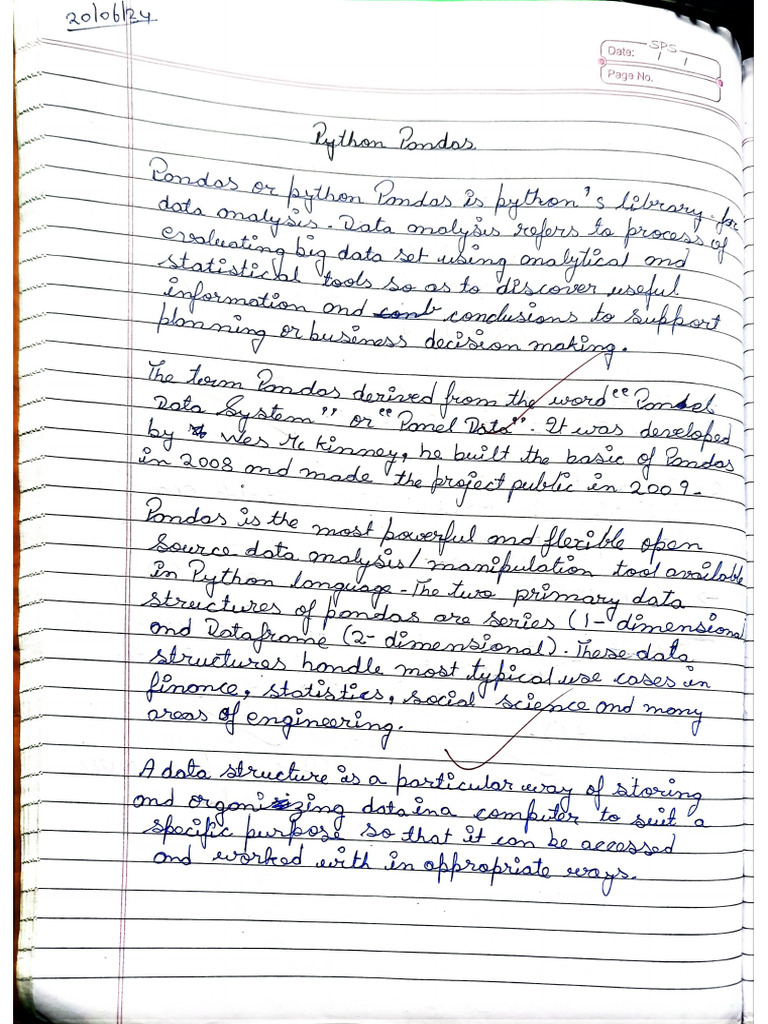 20/06/24
SPS
Date: / /
Page No.
Python Pandas
Pandas or python Pandas is python's library for
data analysis. Data analysis refers to process of
evaluating big data set using analytical and
statistical tools so as to discover useful
information and conclusions to support
planning or business decision making.
The term Pandas derived from the word "Panel
Data System" or "Panel Data". It was developed
by Wes Mc Kinney, he built the basic of Pandas
in 2008 and made the project public in 2009.
Pandas is the most powerful and flexible open
source data analysis/manipulation tool available
in Python language. The two primary data
structures of pandas are series (1-dimensional
and Dataframe (2-dimensional). These data
structures handle most typical use cases in
finance, statistics, social science and many
areas of engineering.
A data structure is a particular way of storing
and organizing data in a computer to suit a
specific purpose so that it can be accessed
and worked with in appropriate ways.